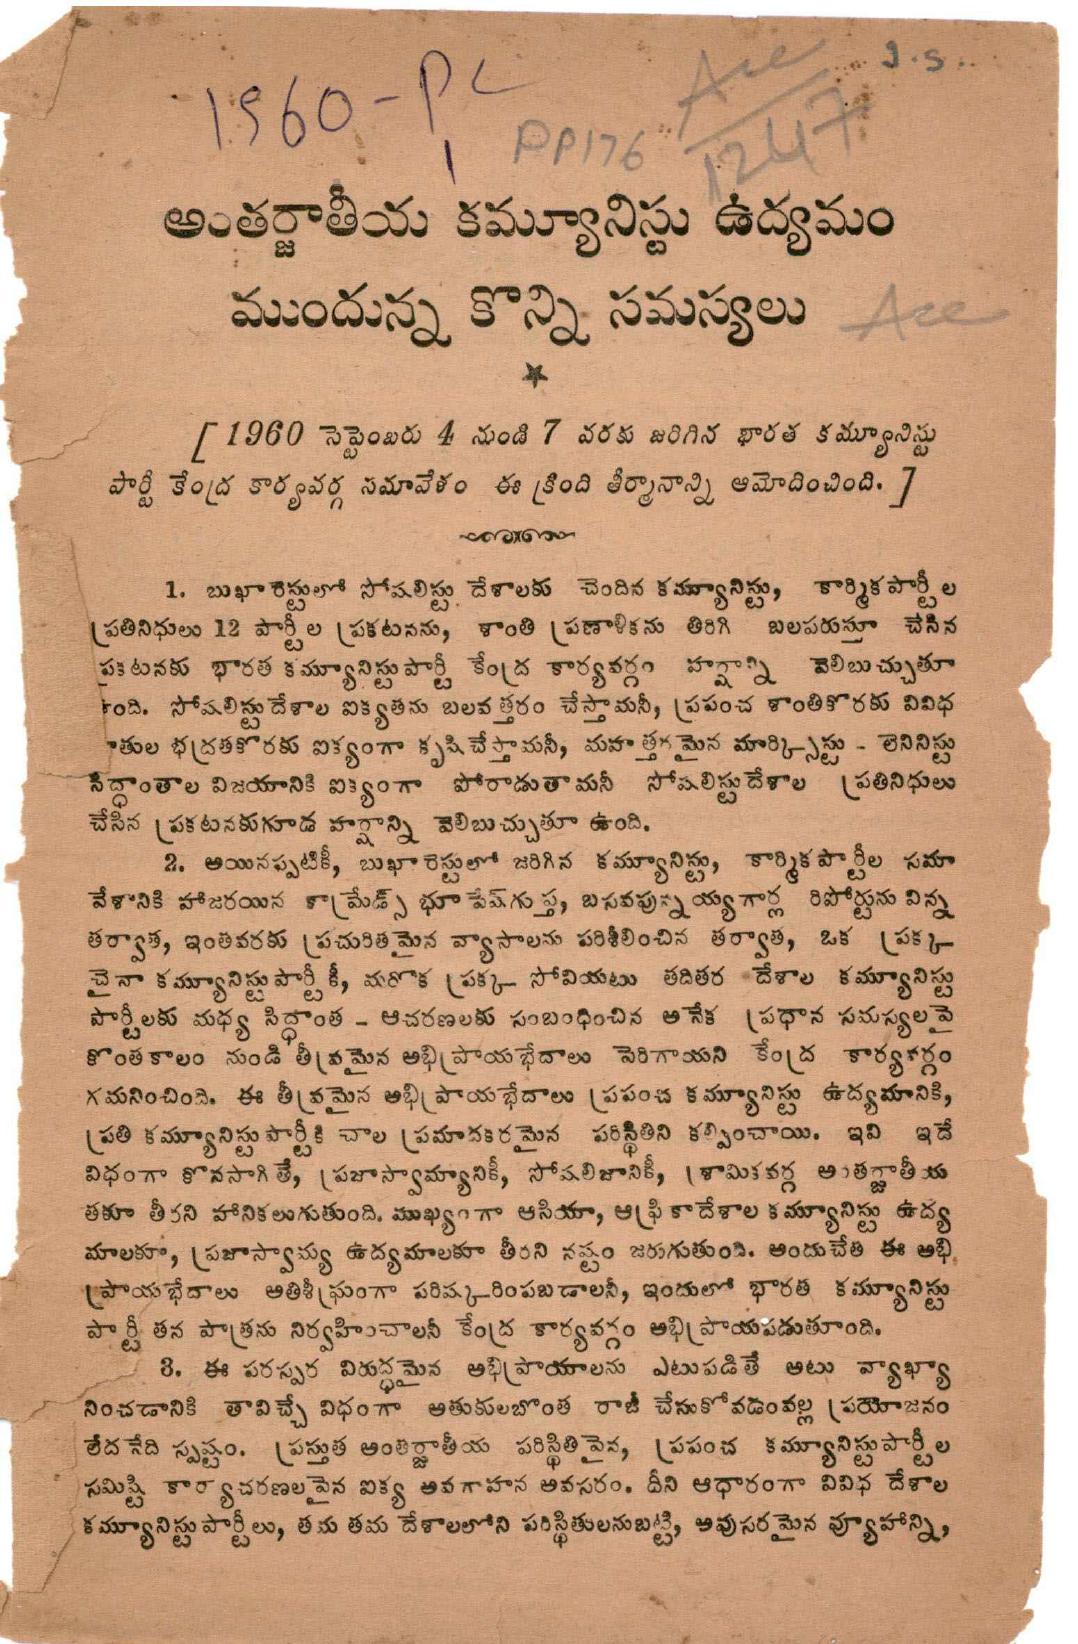 1960-PC
1
PP176
Acc
1247
J.S.
అంతర్జాతీయ కమ్యూనిస్టు ఉద్యమం
ముందున్న కొన్ని సమస్యలు
Acc
[ 1960 సెప్టెంబరు 4 నుండి 7 వరకు జరిగిన భారత కమ్యూనిస్టు
పార్టీ కేంద్ర కార్యవర్గ సమావేళం ఈ క్రింది తీర్మానాన్ని ఆమోదించింది. ]
1. బుఖారెస్టులో సోషలిస్టు దేశాలకు చెందిన కమ్యూనిస్టు, కార్మికపార్టీల
ప్రతినిధులు 12 పార్టీల ప్రకటనను, శాంతి ప్రణాళికను తిరిగి బలపరుస్తూ చేసిన
ప్రకటనకు భారత కమ్యూనిస్టుపార్టీ కేంద్ర కార్యవర్గం హర్షాన్ని వెలిబుచ్చుతూ
ఉంది. సోషలిస్టుదేశాల ఐక్యతను బలవత్తరం చేస్తామనీ, ప్రపంచ శాంతికొరకు వివిధ
జాతుల భద్రతకొరకు ఐక్యంగా కృషిచేస్తామనీ, మహత్తగమైన మార్క్సిస్టు - లెనినిస్టు
సిద్ధాంతాల విజయానికి ఐక్యంగా పోరాడుతామనీ సోషలిస్టుదేశాల ప్రతినిధులు
చేసిన ప్రకటనకుగూడ హర్షాన్ని వెలిబుచ్చుతూ ఉంది.
2. అయినప్పటికీ, బుఖారెస్టులో జరిగిన కమ్యూనిస్టు, కార్మికపార్టీల సమా
వేశానికి హాజరయిన కామ్రేడ్స్ భూపేష్‌గుప్త, బసవపున్నయ్యగార్ల రిపోర్టును విన్న
తర్వాత, ఇంతవరకు ప్రచురితమైన వ్యాసాలను పరిశీలించిన తర్వాత, ఒక ప్రక్క
చైనా కమ్యూనిస్టుపార్టీకీ, మరొక ప్రక్క సోవియటు తదితర దేశాల కమ్యూనిస్టు
పార్టీలకు మధ్య సిద్ధాంత - ఆచరణలకు సంబంధించిన అనేక ప్రధాన సమస్యలపై
కొంతకాలం నుండి తీవ్రమైన అభిప్రాయభేదాలు పెరిగాయని కేంద్ర కార్యవర్గం
గమనించింది. ఈ తీవ్రమైన అభిప్రాయభేదాలు ప్రపంచ కమ్యూనిస్టు ఉద్యమానికి,
ప్రతి కమ్యూనిస్టుపార్టీకి చాల ప్రమాదకరమైన పరిస్థితిని కల్పించాయి. ఇవి ఇదే
విధంగా కొనసాగితే, ప్రజాస్వామ్యానికీ, సోషలిజానికీ, శ్రామికవర్గ అంతర్జాతీయ
తకూ తీరని హానికలుగుతుంది. ముఖ్యంగా ఆసియా, ఆఫ్రికాదేశాల కమ్యూనిస్టు ఉద్య
మాలకూ, ప్రజాస్వామ్య ఉద్యమాలకూ తీరని నష్టం జరుగుతుంది. అందుచేత ఈ అభి
ప్రాయభేదాలు అతిశీఘ్రంగా పరిష్కరింపబడాలనీ, ఇందులో భారత కమ్యూనిస్టు
పార్టీ తన పాత్రను నిర్వహించాలనీ కేంద్ర కార్యవర్గం అభిప్రాయపడుతూంది.
3. ఈ పరస్పర విరుద్ధమైన అభిప్రాయాలను ఎటుపడితే అటు వ్యాఖ్యా
నించడానికి తావిచ్చే విధంగా అతుకులబొంత రాజీ చేసుకోవడంవల్ల ప్రయోజనం
లేదనేది స్పష్టం. ప్రస్తుత అంతర్జాతీయ పరిస్థితిపైన, ప్రపంచ కమ్యూనిస్టుపార్టీల
సమిష్టి కార్యాచరణలపైన ఐక్య అవగాహన అవసరం. దీని ఆధారంగా వివిధ దేశాల
కమ్యూనిస్టుపార్టీలు, తమ తమ దేశాలలోని పరిస్థితులనుబట్టి, అవుసరమైన వ్యూహాన్ని,